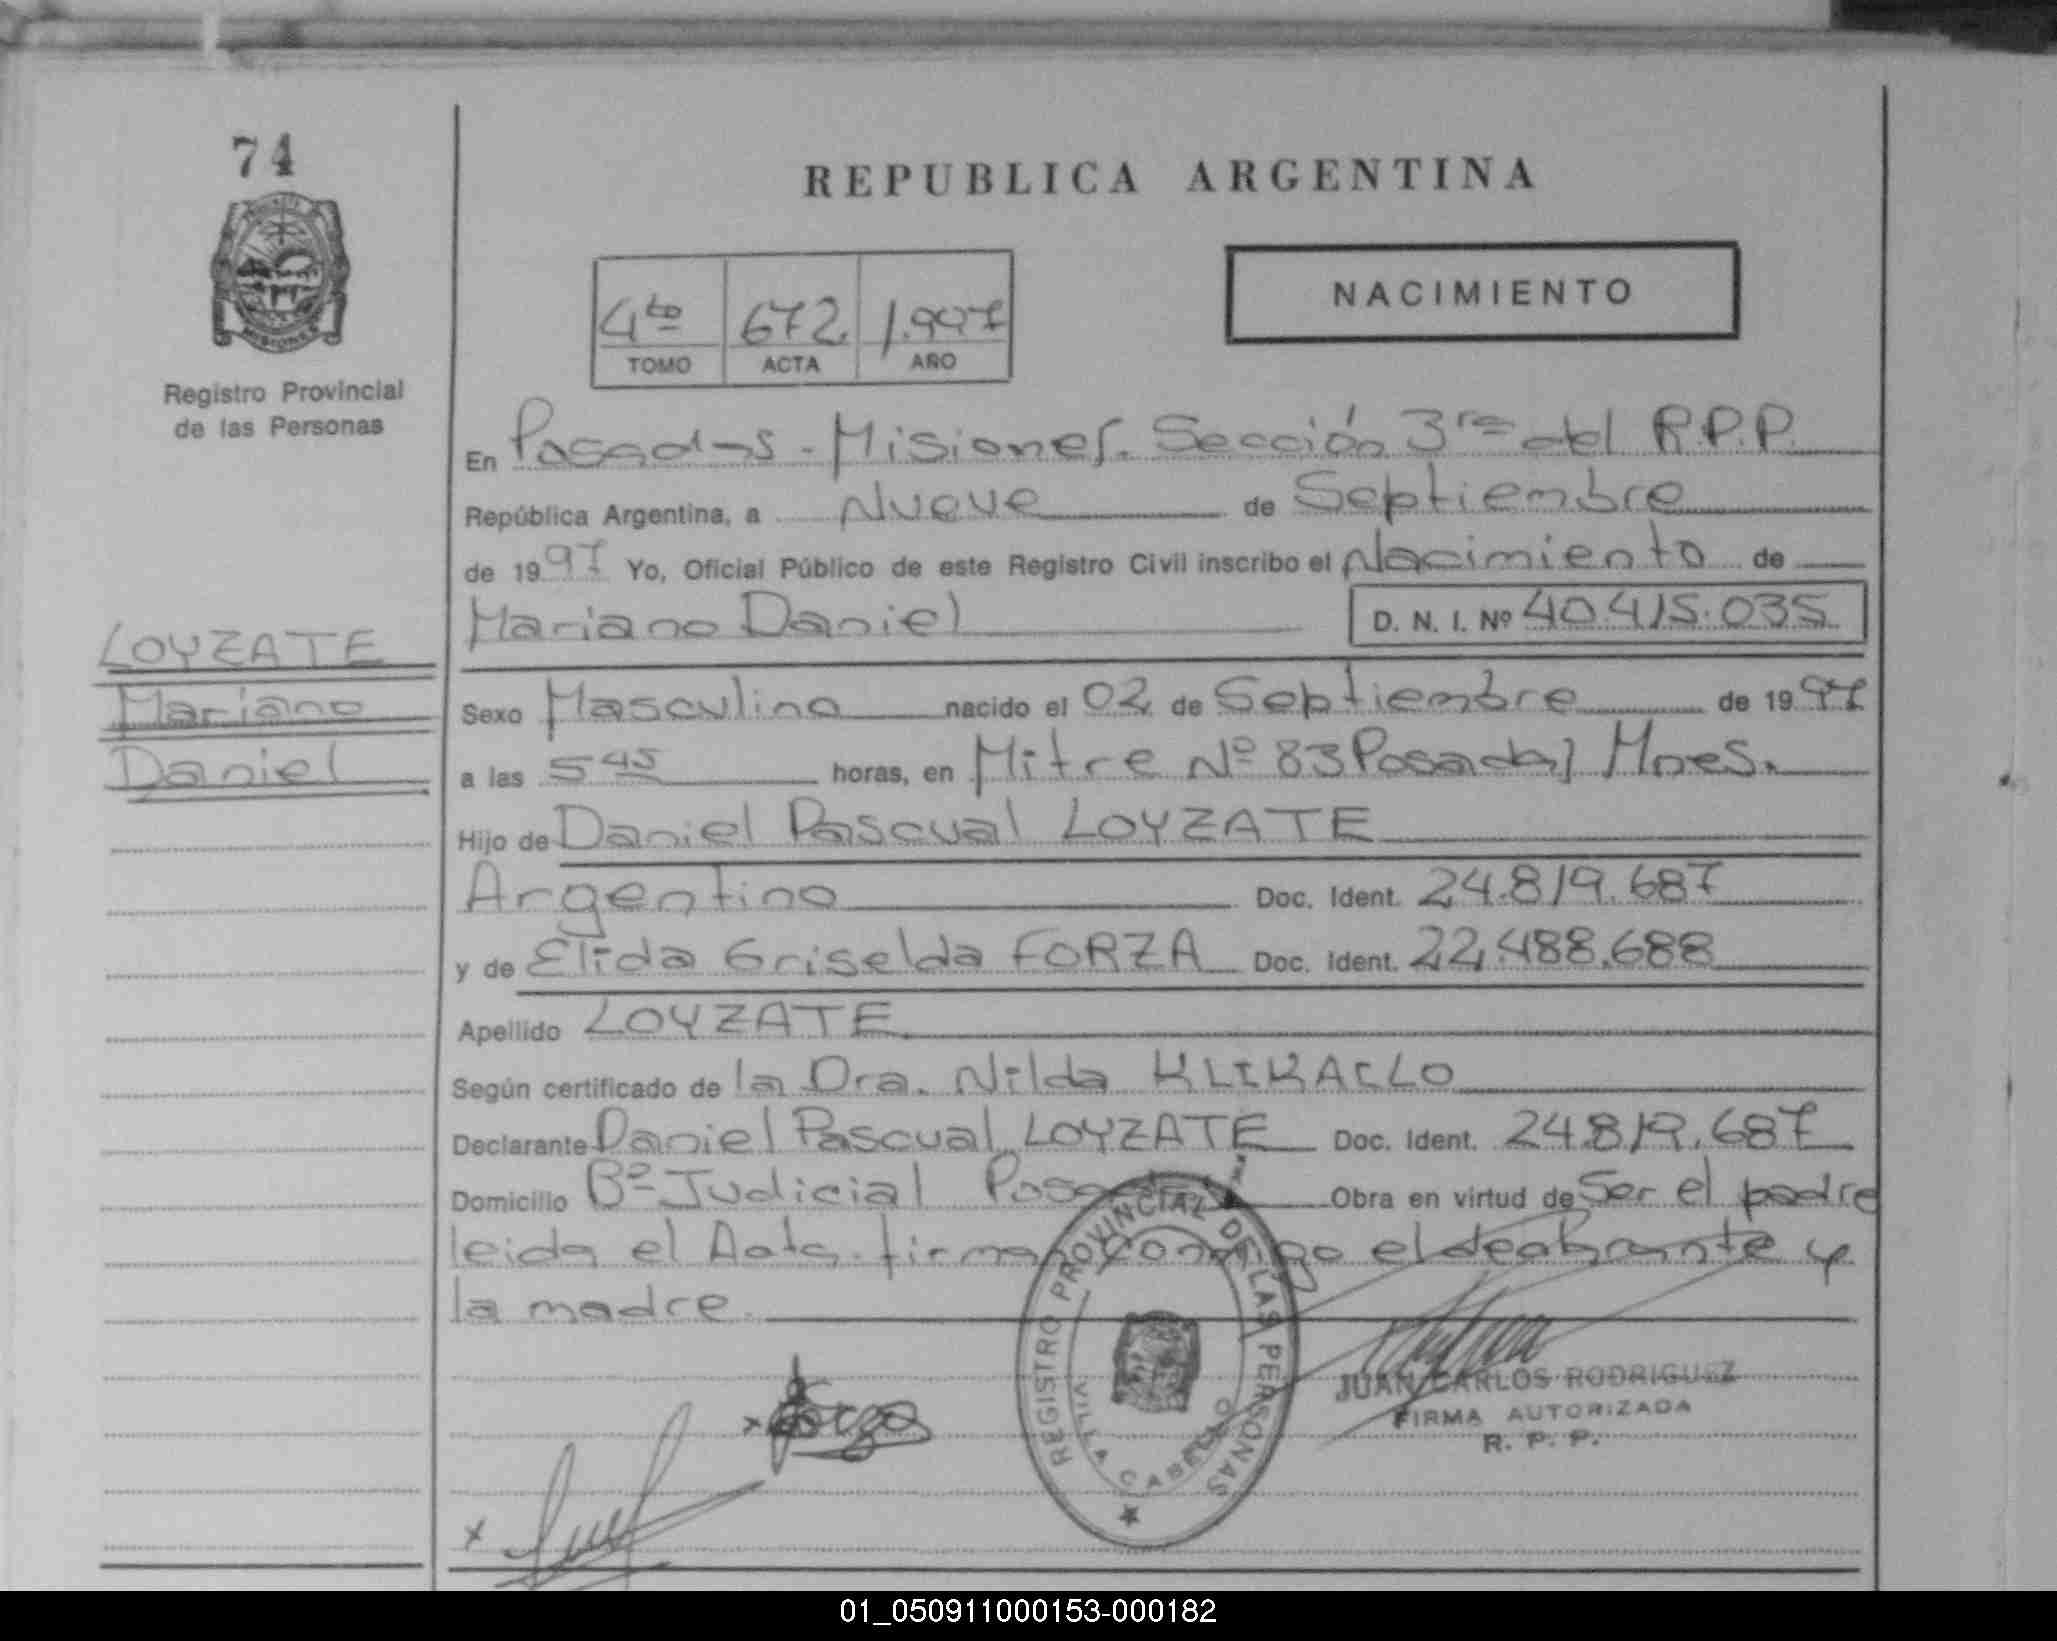 74
REPUBLICA ARGENTINA
NACIMIENTO
4to 672 1.997
TOMO ACTA AÑO
Registro Provincial
de las Personas
En Posadas - Misiones. Sección 3ra del R.P.P.
República Argentina, a Nueve de Septiembre
de 1997 Yo, Oficial Público de este Registro Civil inscribo el Nacimiento de
Mariano Daniel D. N. I. Nº 40.415.035
LOYZATE
Mariano
Daniel
Sexo Masculino nacido el 02 de Septiembre de 1997
a las 5 45 horas, en Mitre Nº 83 Posadas Mnes.
Hijo de Daniel Pascual LOYZATE
Argentino Doc. Ident. 24.819.687
y de Elida Griselda FORZA Doc. Ident. 22.488.688
Apellido LOYZATE
Según certificado de la Dra. Nilda
Declarante Daniel Pascual LOYZATE Doc. Ident. 24.819.687
Domicilio Bº Judicial Posadas Obra en virtud de Ser el padre
leida el Acta firman conmigo el declarante y
la madre.
REGISTRO PROVINCIAL DE LAS PERSONAS
VILLA CABELLO
JUAN CARLOS RODRIGUEZ
FIRMA AUTORIZADA
R. P. P.
x
x
01_050911000153-000182